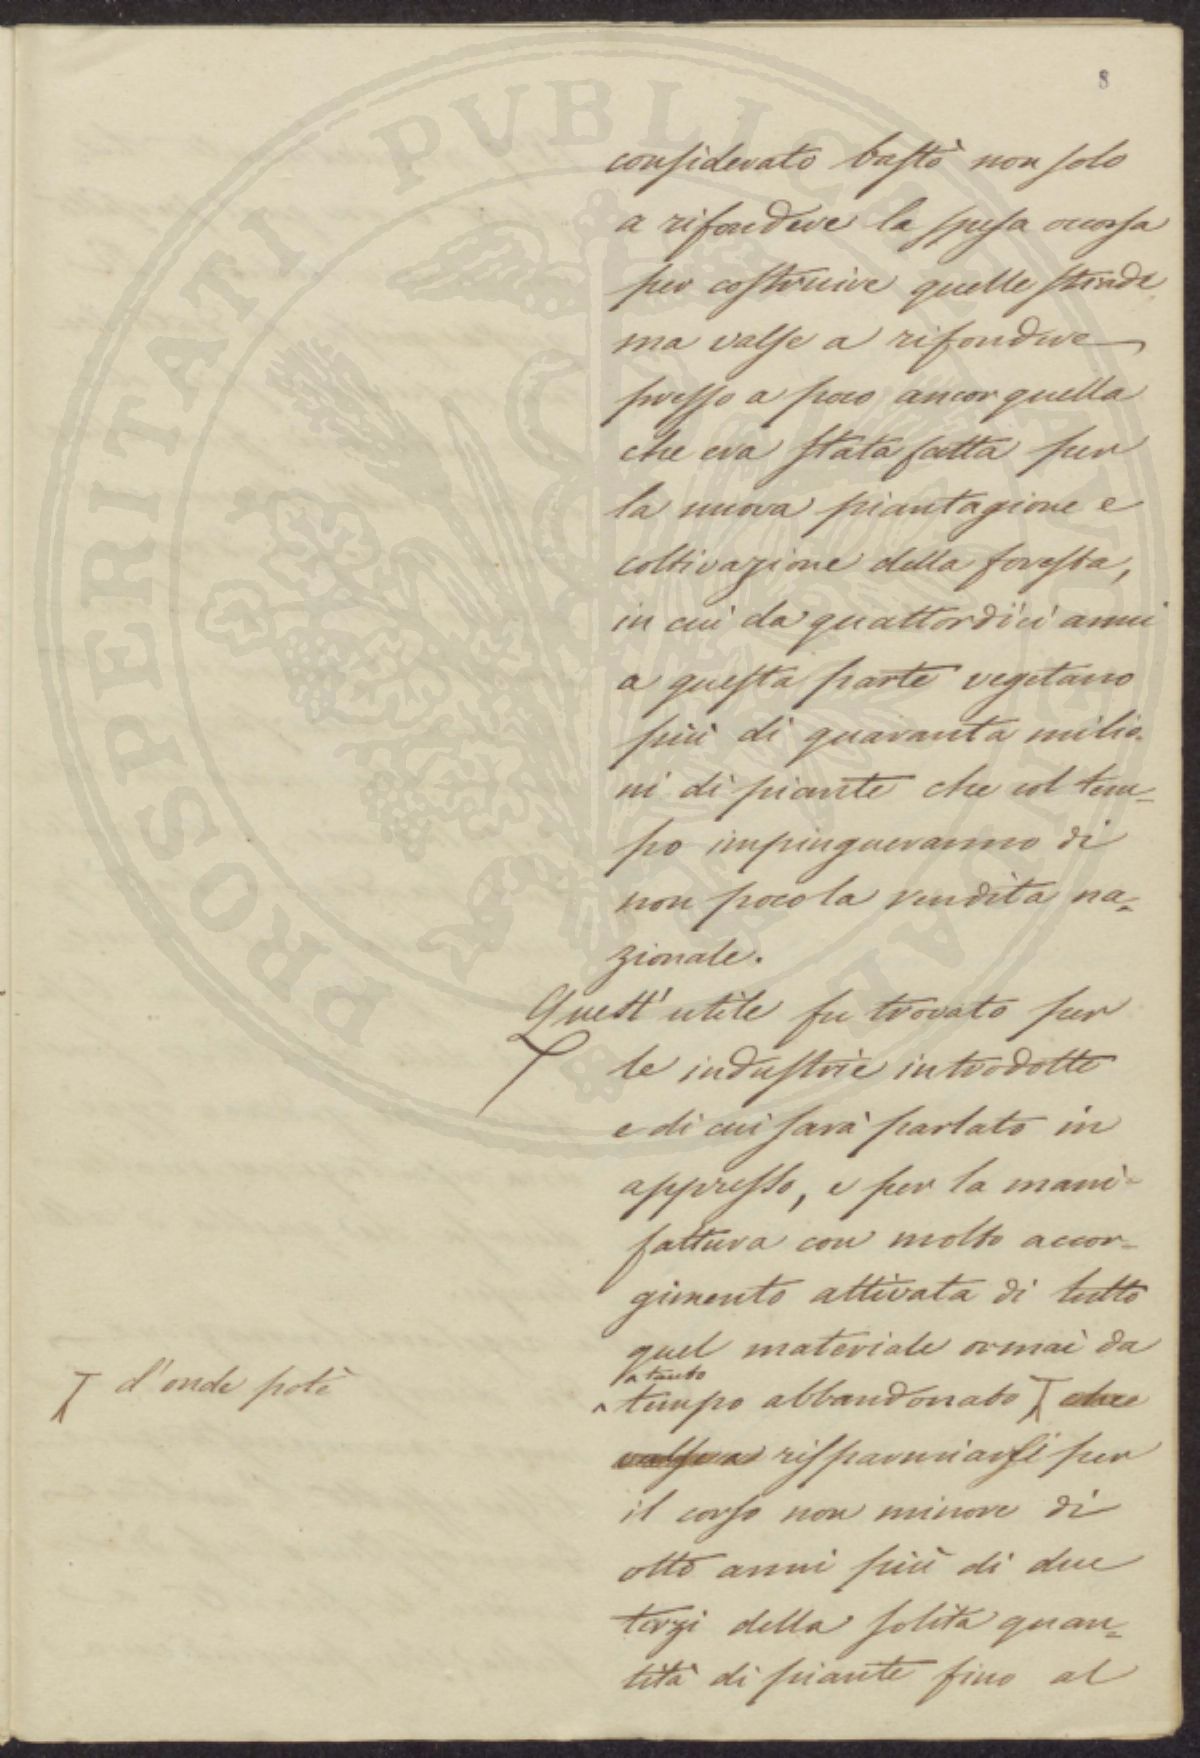 8
considerato bastò non solo
a rifondere la spesa occorsa
per costruire quelle strade
ma valse a rifondere
presso a poco ancor quella
che era stata fatta per
la nuova piantagione e
coltivazione della foresta,
in cui da quattordici anni
a questa parte vegetano
più di quaranta milio-
ni di piante che col tem-
po impingueranno di
non poco la rendita na-
zionale.
Quest'utile fu trovato per
le industrie introdotte
e di cui sarà parlato in
appresso, e per la mani-
fattura con molto accor-
gimento attivata di tutto
quel materiale ormai da
tanto
tempo abbandonato
d'onde potè
risparmiarsi per
il corso non minore di
otto anni più di due
terzi della solita quan-
tità di piante fino al
PROSPERITATI PUBLICAE